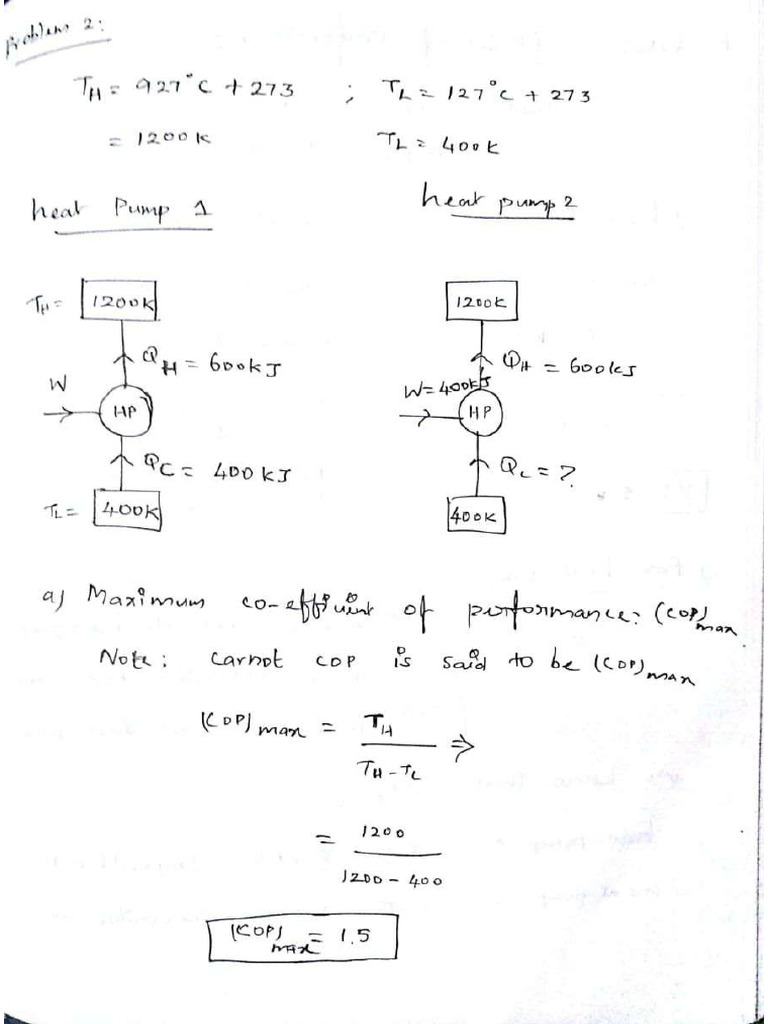 problem 2:
TH = 927°C + 273 ; TL = 127°C + 273
= 1200K TL = 400K
heat Pump 1 heat pump 2
TH = 1200K 1200K
QH = 600kJ QH = 600kJ
W W=400kJ
HP HP
QC = 400kJ QL = ?
TL = 400K 400K
a) Maximum co-efficient of performance: (COP)max
Note: carnot COP is said to be (COP)max
(COP)max = TH / TH-TL ⇒
= 1200 / 1200 - 400
(COP)max = 1.5